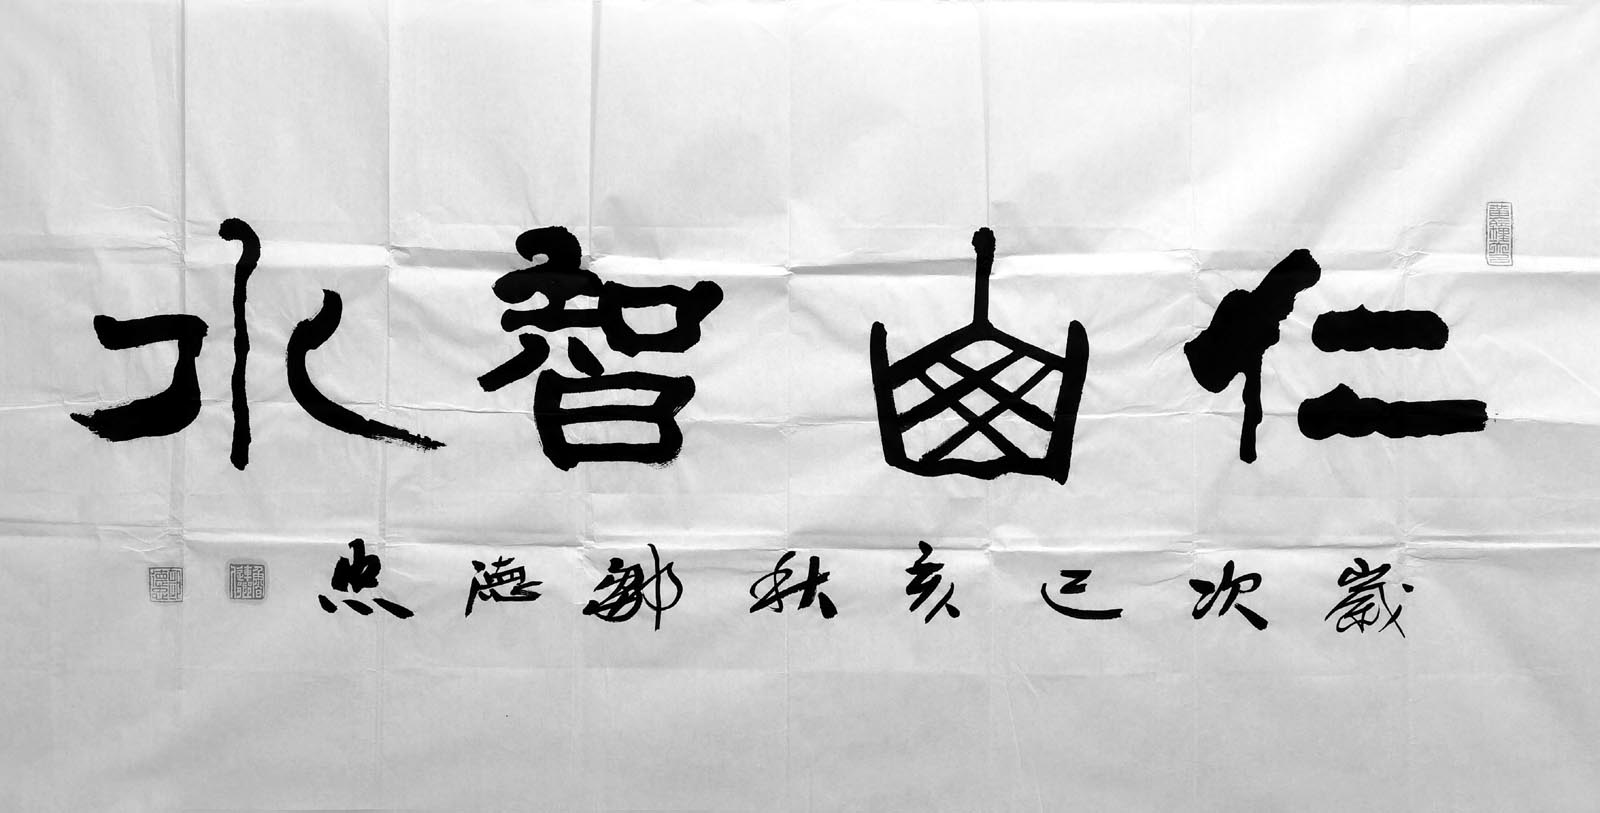 仁山智水
歲次己亥秋鄒德忠